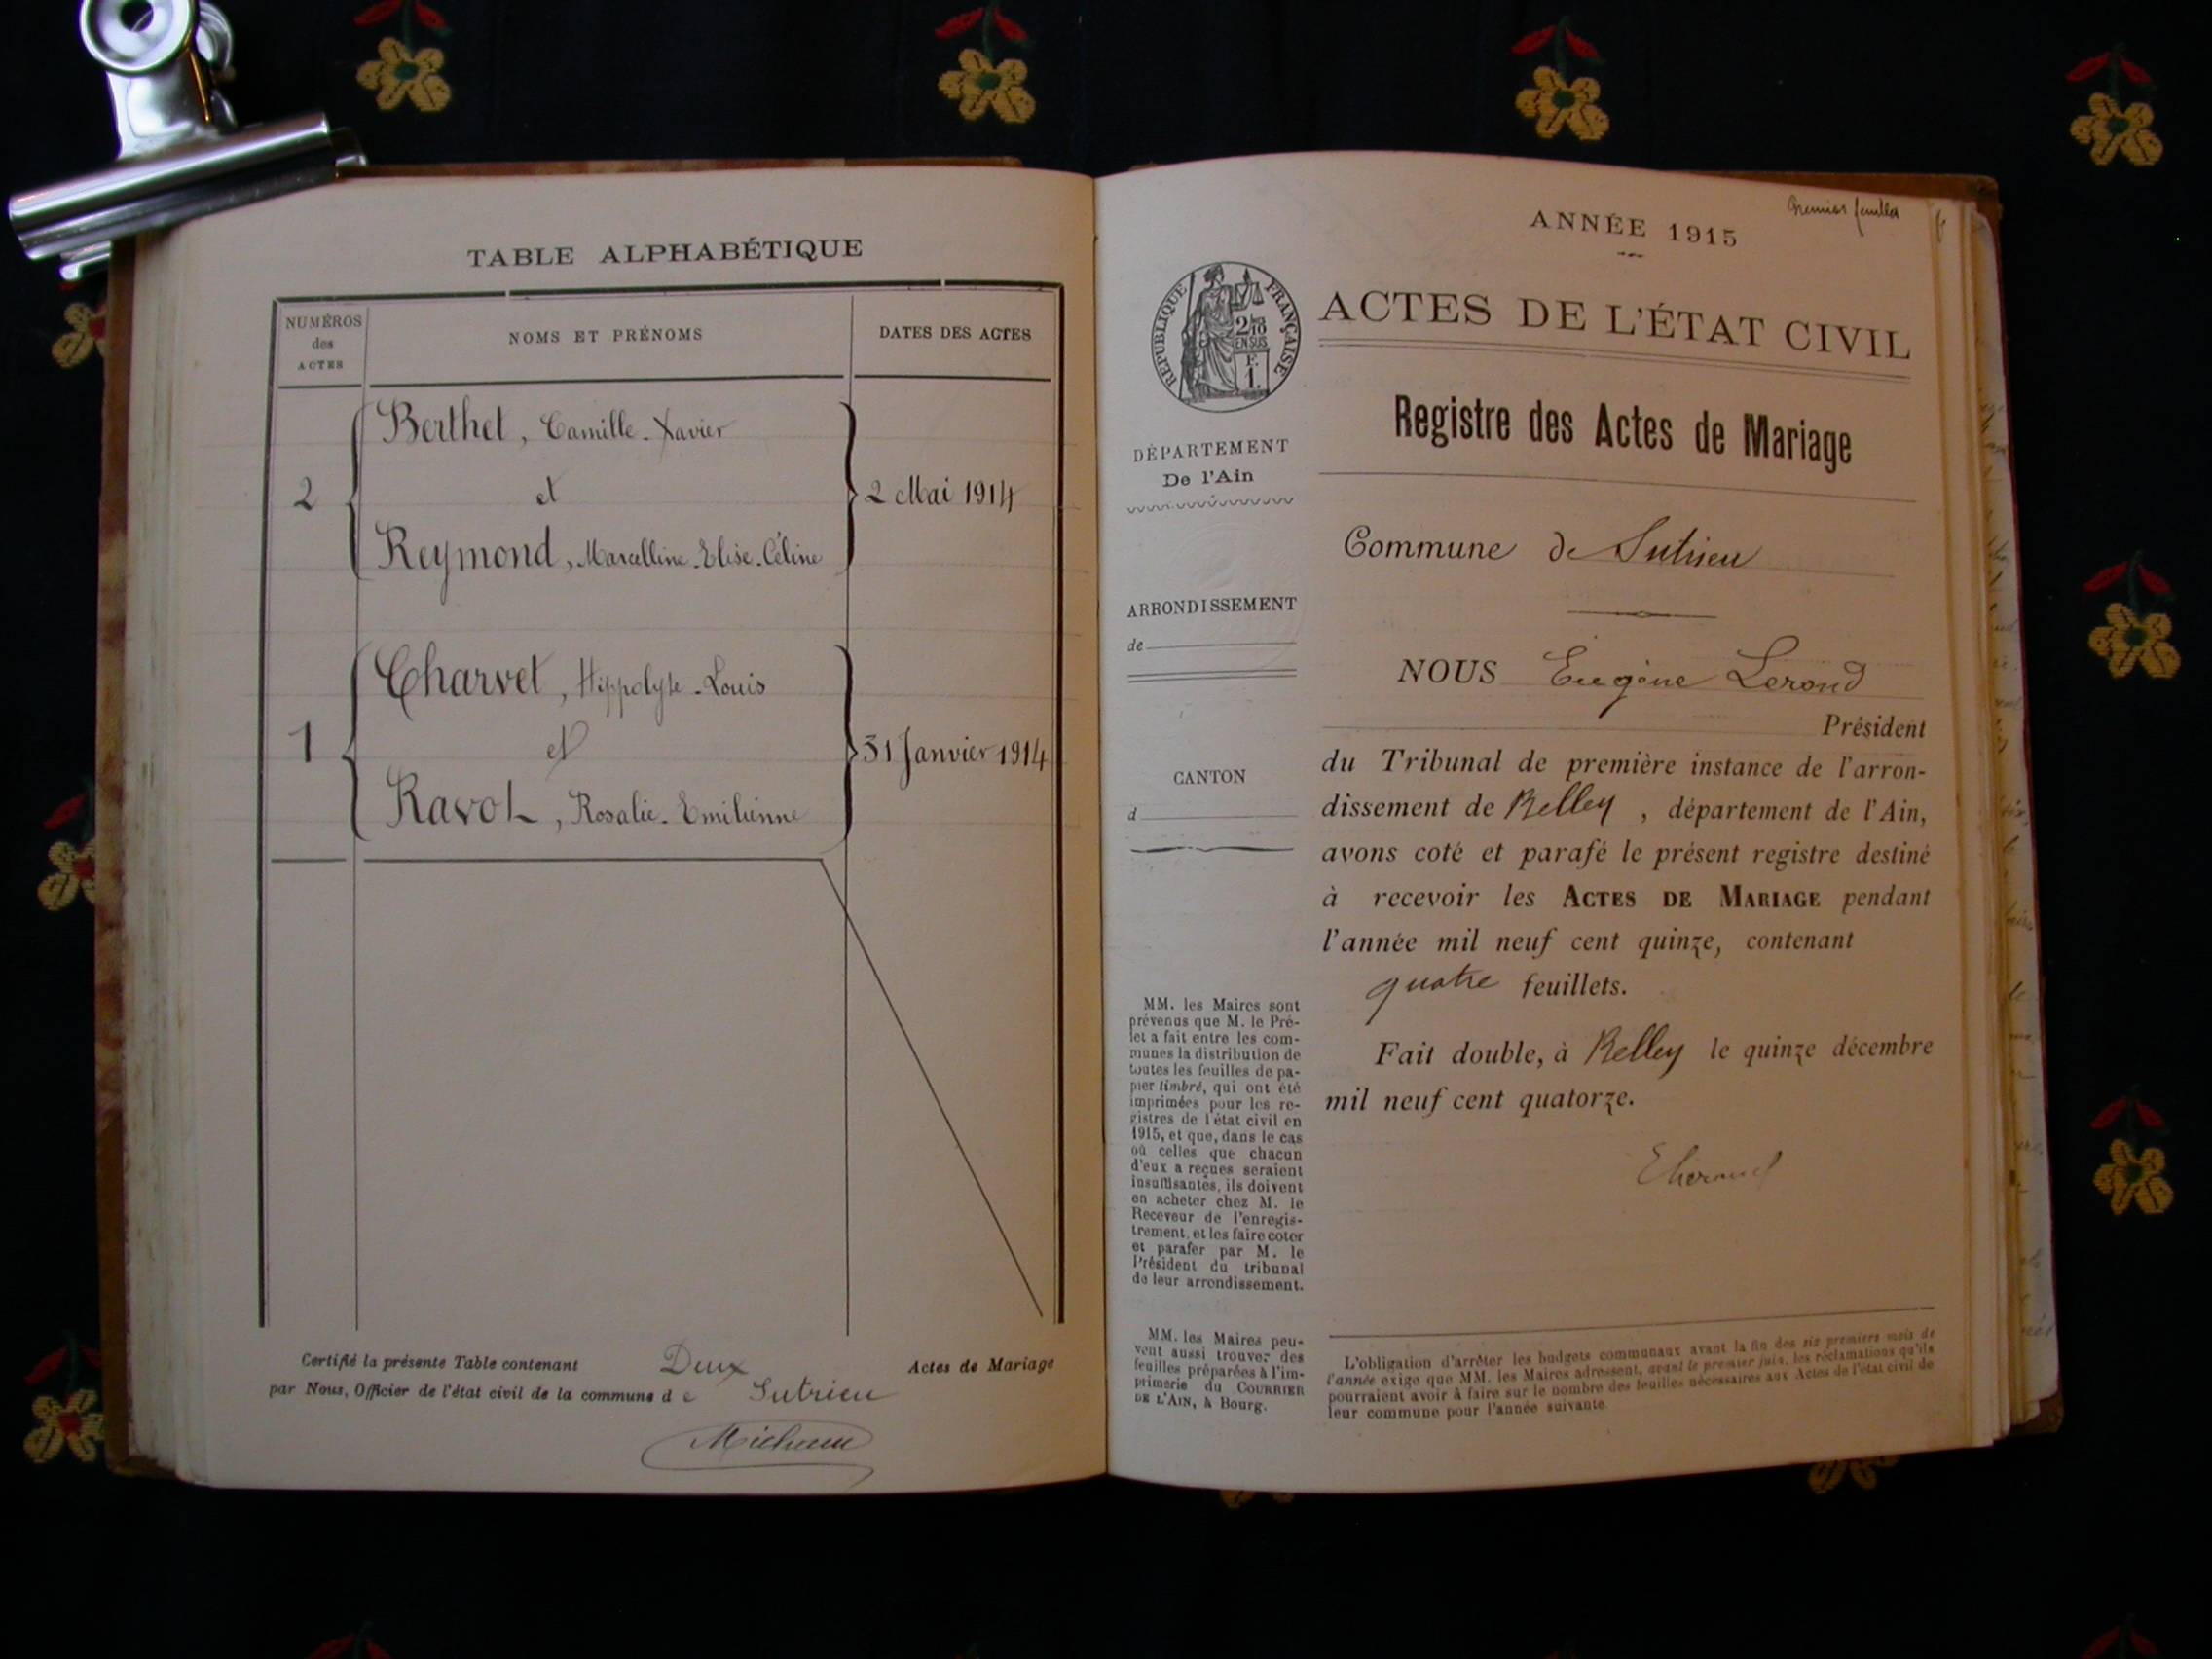 TABLE ALPHABÉTIQUE
NUMÉROS
des
ACTES
NOMS ET PRÉNOMS
DATES DES ACTES
Berthet, Camille-Xavier
2
et
2 Mai 1914
Reymond, Marcelline-Elise-Céline
Charvet, Hippolyte-Louis
1
et
31 Janvier 1914
Ravot, Rosalie-Emilienne
Certifié la présente Table contenant Deux Actes de Mariage
par Nous, Officier de l'état civil de la commune de Sutrieu
ANNÉE 1915
Premier feuillet
RÉPUBLIQUE FRANÇAISE
2/10
EN SUS
F.
1.
ACTES DE L'ÉTAT CIVIL
Registre des Actes de Mariage
DÉPARTEMENT
De l'Ain
Commune de Sutrieu
ARRONDISSEMENT
de
NOUS Eugène Lerond
Président
du Tribunal de première instance de l'arron-
dissement de Belley, département de l'Ain,
avons coté et parafé le présent registre destiné
à recevoir les ACTES DE MARIAGE pendant
l'année mil neuf cent quinze, contenant
quatre feuillets.
Fait double, à Belley le quinze décembre
mil neuf cent quatorze.
CANTON
d
MM. les Maires sont
prévenus que M. le Pré-
fet a fait entre les com-
munes la distribution de
toutes les feuilles de pa-
pier timbré, qui ont été
imprimées pour les re-
gistres de l'état civil en
1915, et que, dans le cas
où celles que chacun
d'eux a reçues seraient
insuffisantes, ils doivent
en acheter chez M. le
Receveur de l'enregis-
trement, et les faire coter
et parafer par M. le
Président du tribunal
de leur arrondissement.
MM. les Maires peu-
vent aussi trouver des
feuilles préparées à l'im-
primerie du COURRIER
DE L'AIN, à Bourg.
L'obligation d'arrêter les budgets communaux avant la fin des six premiers mois de
l'année exige que MM. les Maires adressent, avant le premier juin, les réclamations qu'ils
pourraient avoir à faire sur le nombre des feuilles nécessaires aux Actes de l'état civil de
leur commune pour l'année suivante.